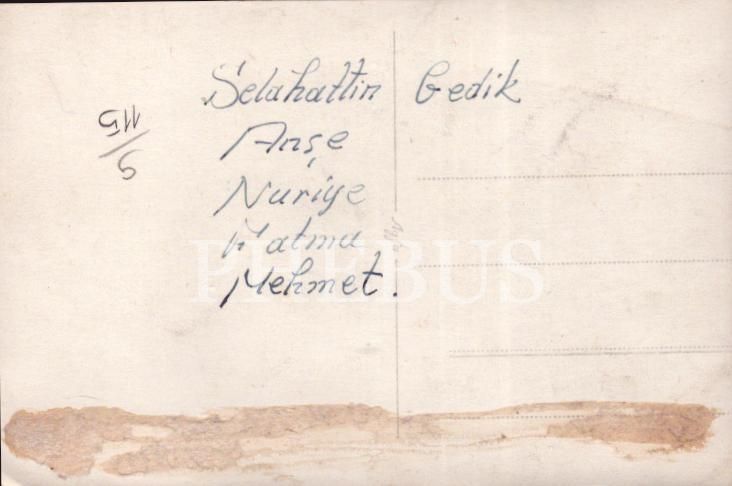 Selahattin Gedik
Anşe
Nuriye
Fatma
Mehmet.
PHEBUS
115/9